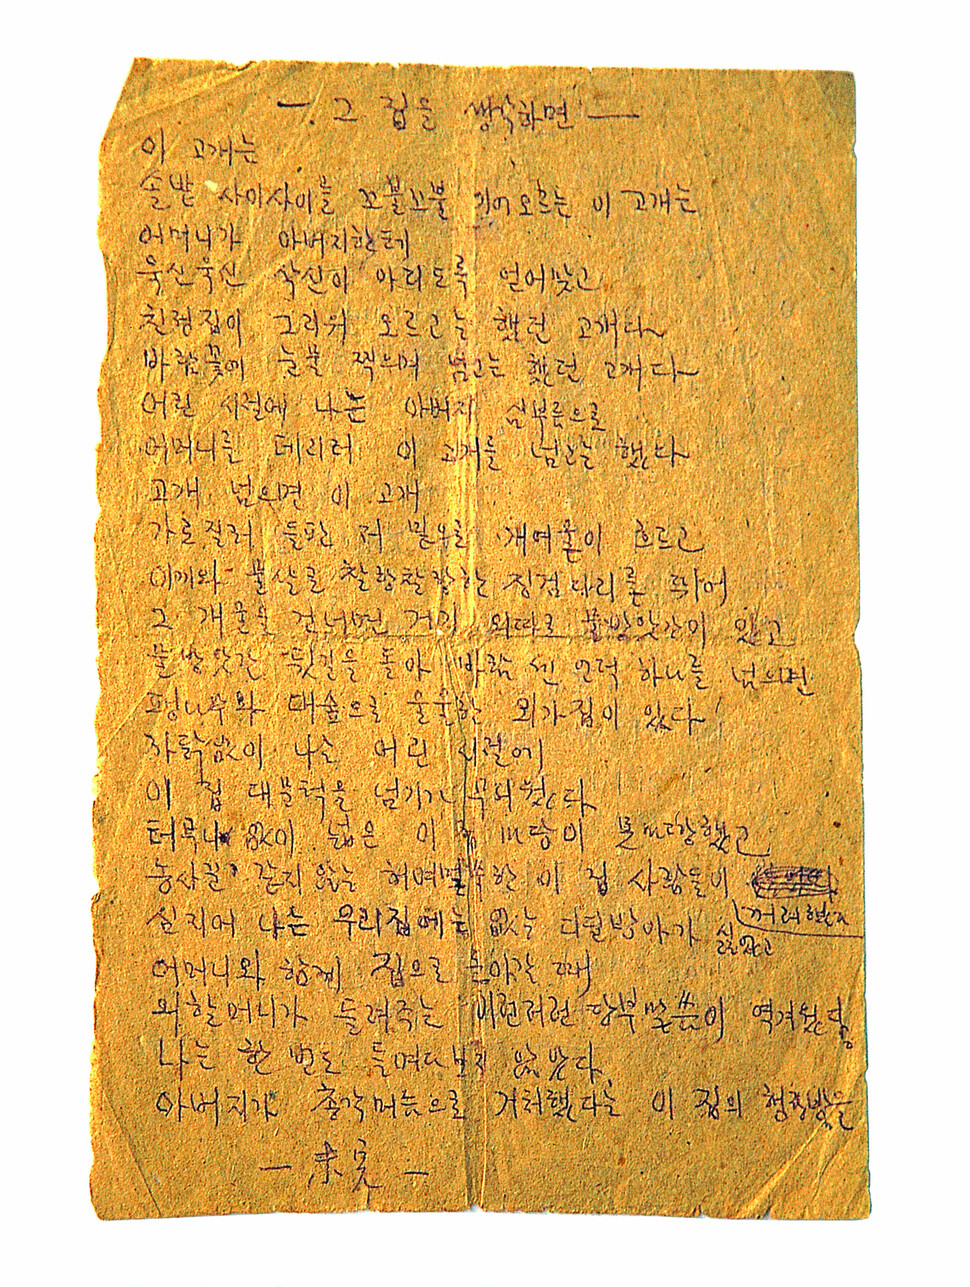 — 그 집을 생각하면 —
이 고개는
솔밭 사이사이를 꼬불꼬불 기어오르는 이 고개는
어머니가 아버지한테
욱신욱신 삭신이 아리도록 얻어맞고
친정집이 그리워 오르고는 했던 고개다
바람꽃에 눈물 찍으며 넘고는 했던 고개다
어린 시절에 나는 아버지 심부름으로
어머니를 데리러 이 고개를 넘고는 했다
고개 넘으면 이 고개
가로질러 들판 저 밑으로 개여울이 흐르고
이끼와 물살로 찰랑찰랑한 징검다리를 뛰어
그 개울을 건너면 거기 외따로 물방앗간이 있고
물방앗간 뒷길을 돌아 바람 센 언덕 하나를 넘으면
팽나무와 대숲으로 울울한 외가집이 있다
까닭없이 나는 어린 시절에
이 집 대문턱을 넘기가 무서웠다
터무니 없이 넓은 이 집 마당이 못마땅했고
농사꾼 같지 않는 허여멀쑥한 이 집 사람들이 꺼려했다
심지어 나는 우리집에는 없는 디딜방아가 싫었고
어머니와 함께 집으로 돌아갈 때
외할머니가 들려주는 이런저런 당부말씀이 역겨웠다
나는 한 번도 들여다보지 않았다
아버지가 총각머슴으로 거처했다는 이 집의 행랑방을
— 未完 —